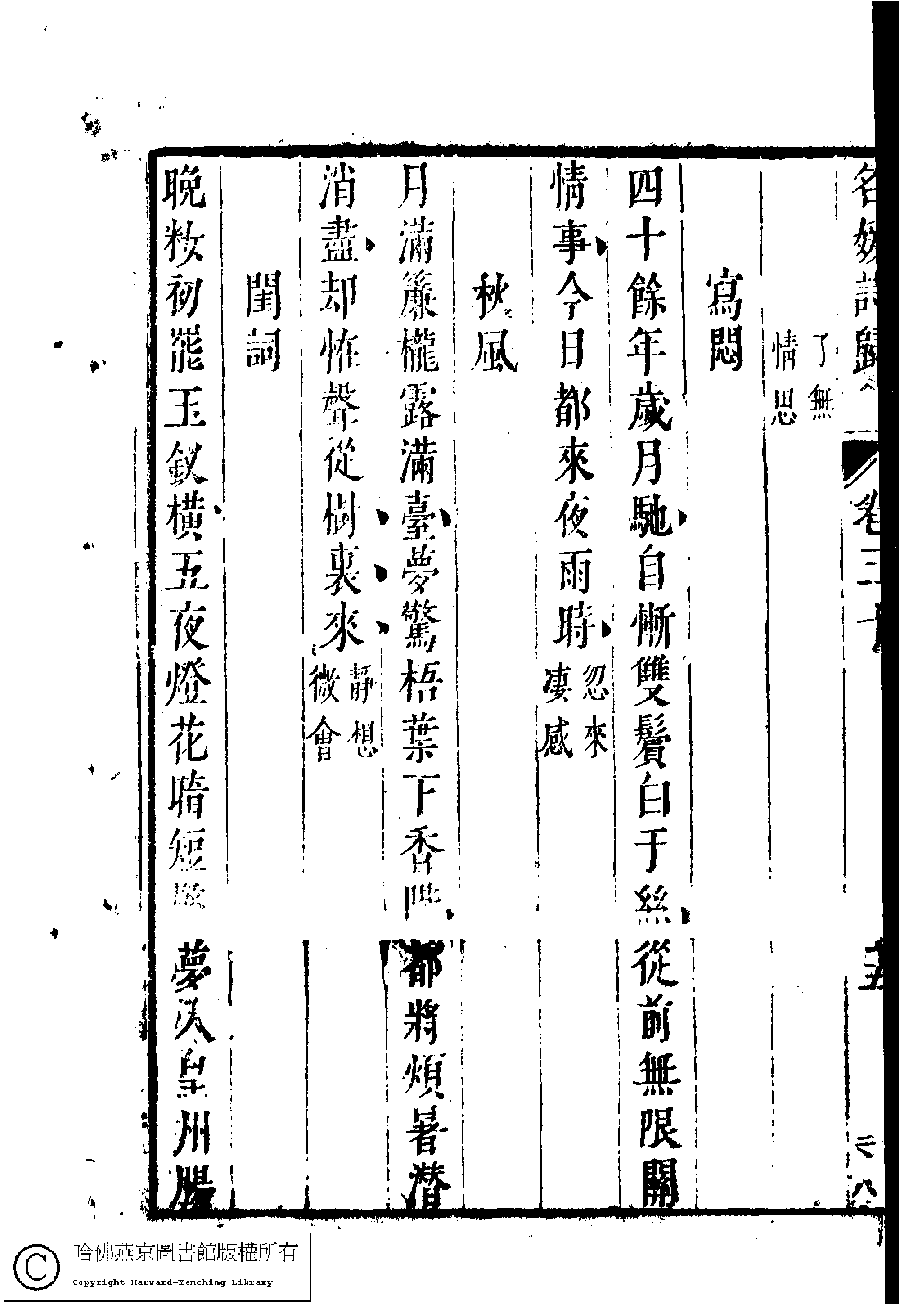 名媛詩歸 卷三十
了無
情思
寫悶
四十餘年歲月馳自慚雙鬢白于絲從前無限關
情事今日都來夜雨時忽來凄感
秋風
月滿簾櫳露滿臺夢驚梧葉下香階都將煩暑潛
消盡却恠聲從樹裏來靜想微會
閨詞
晚籹初罷玉釵橫五夜燈花暗短夢皇州腸
哈佛燕京圖書館版權所有
Copyright Harvard-Yenching Library